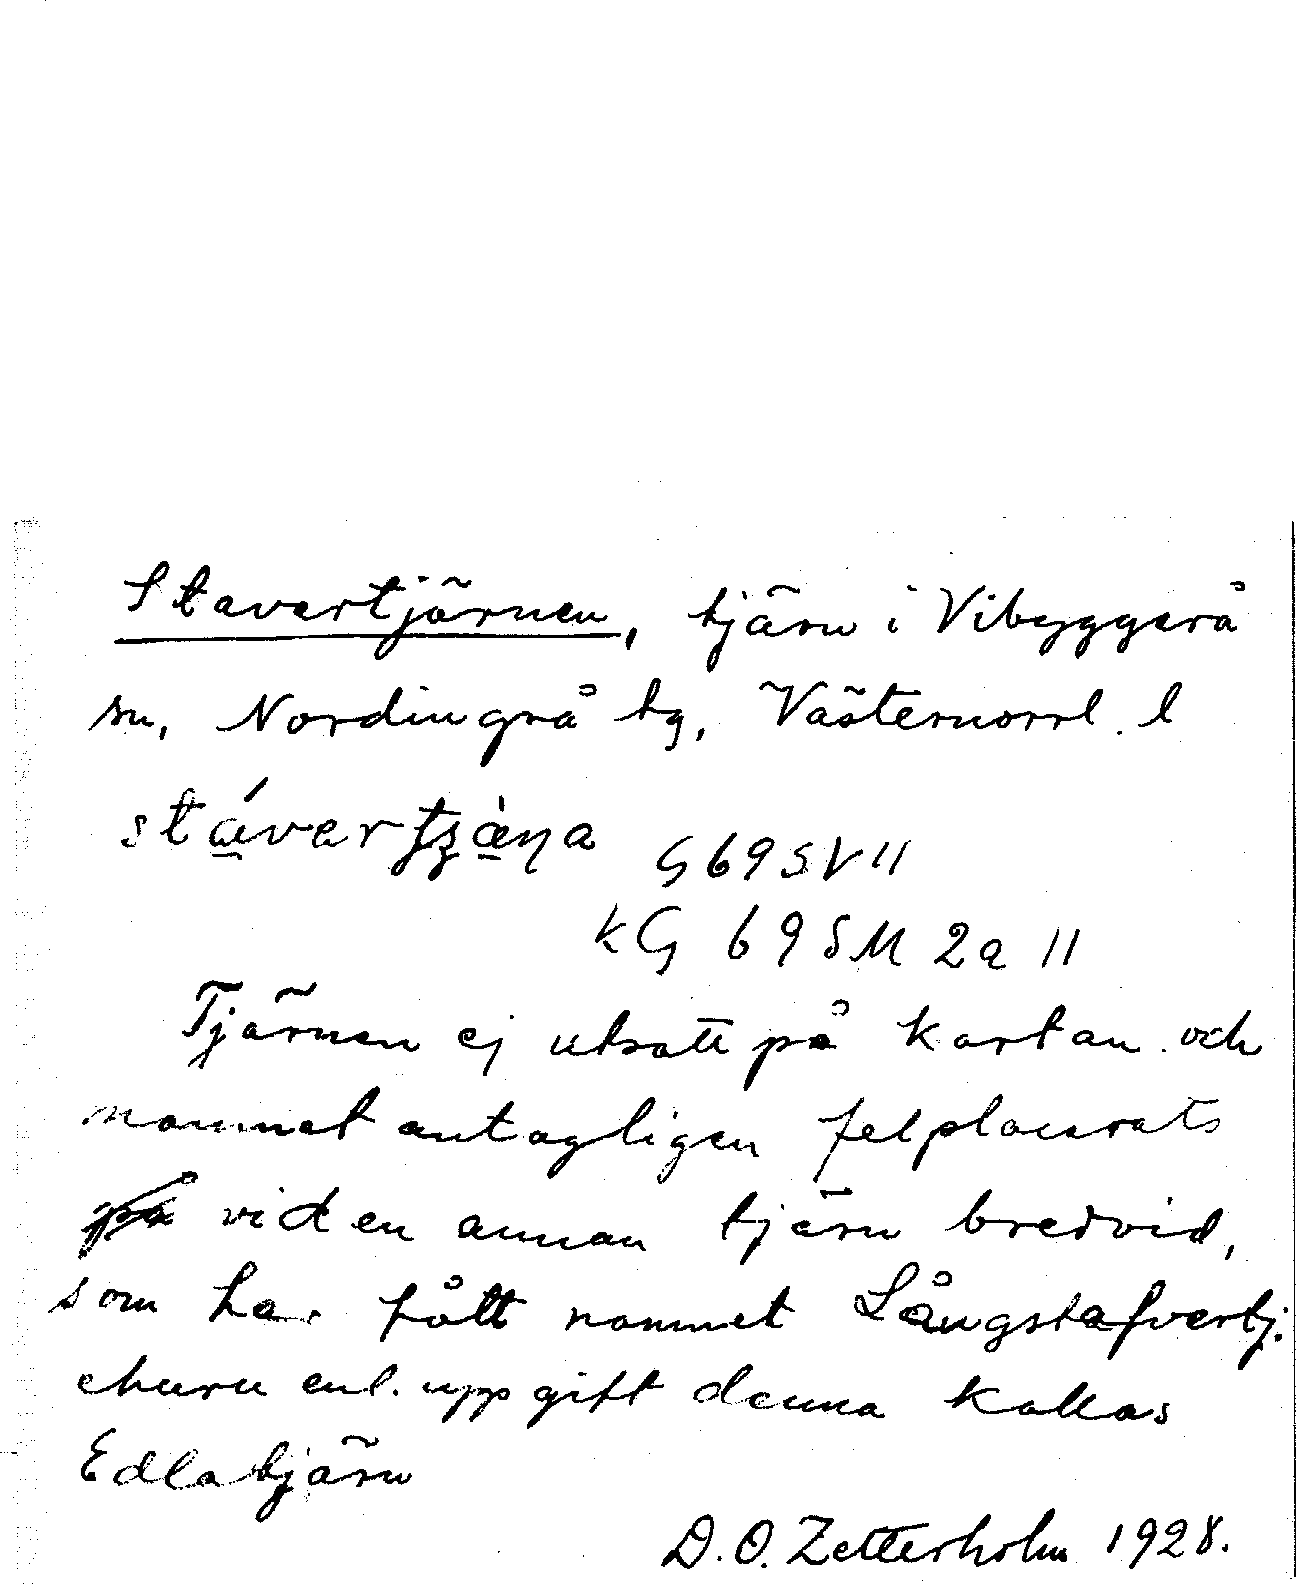 Stavertjärnen, tjärn i Vibyggerå
sn, Nordingrå tg, Västernorrl. l
stávertʒæ̀ɳa G69SV11
kG 69 SM 2a 11
Tjärnen ej utsatt på kartan och
namnet antagligen felplacerats
på vid en annan tjärn bredvid,
som har fått namnet Långstafvertj.
ehuru enl. uppgift denna kallas
Edlatjärn
D. O. Zetterholm 1928.